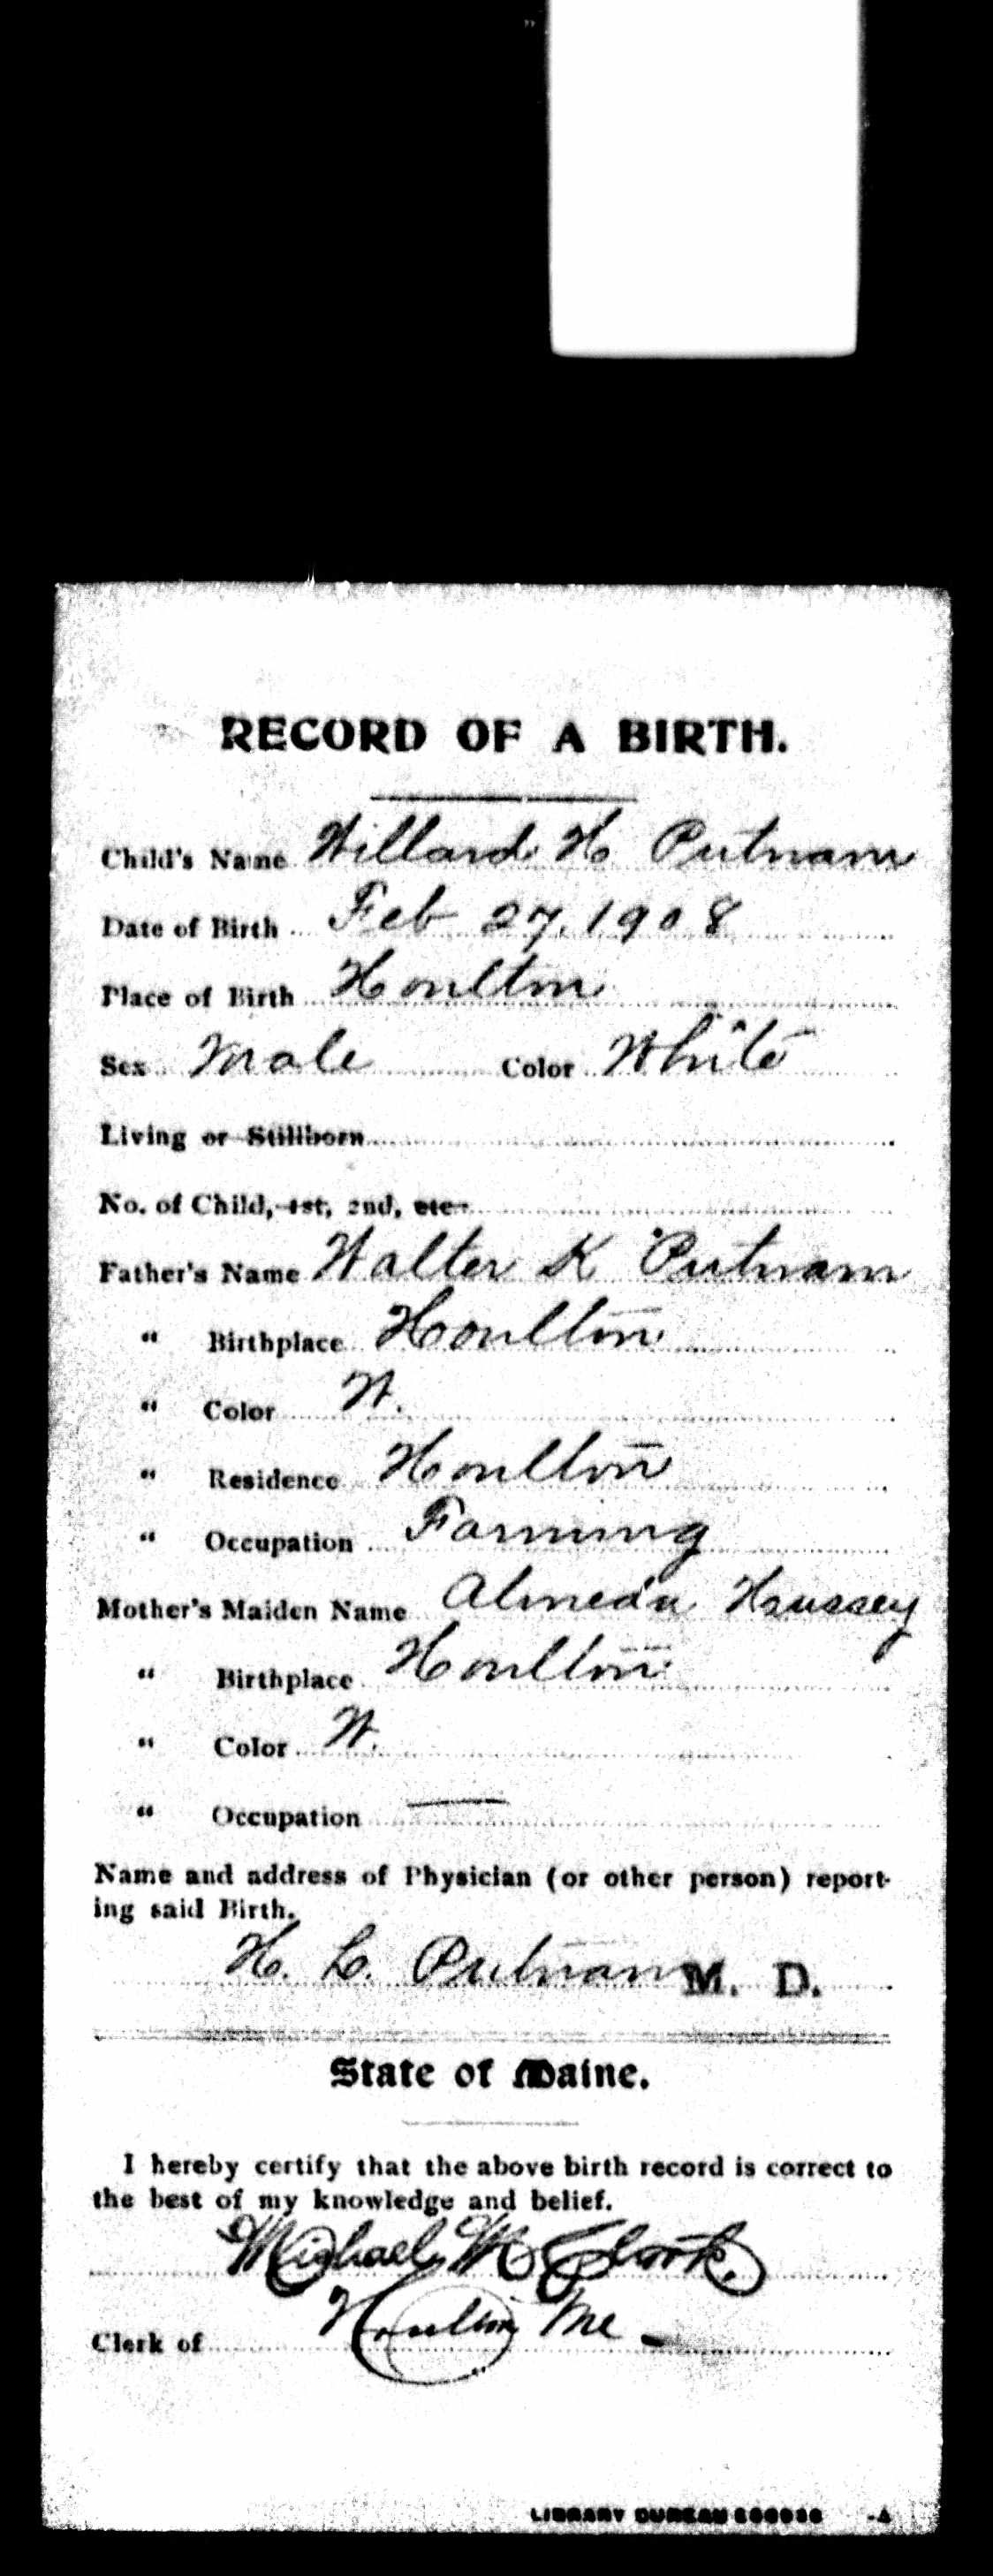 RECORD OF A BIRTH.
Child's Name Willard H Putnam
Date of Birth Feb 27, 1908
Place of Birth Houlton
Sex Male Color White
Living or Stillborn
No. of Child, 1st, 2nd, etc.
Father's Name Walter K Putnam
" Birthplace Houlton
" Color W.
" Residence Houlton
" Occupation Farming
Mother's Maiden Name Almeda Hussey
" Birthplace Houlton
" Color W.
" Occupation —
Name and address of Physician (or other person) report-
ing said Birth.
H. L. Putnam M. D.
State of Maine.
I hereby certify that the above birth record is correct to
the best of my knowledge and belief.
Michael M Clark
Clerk of Houlton Me
LIBRARY BUREAU